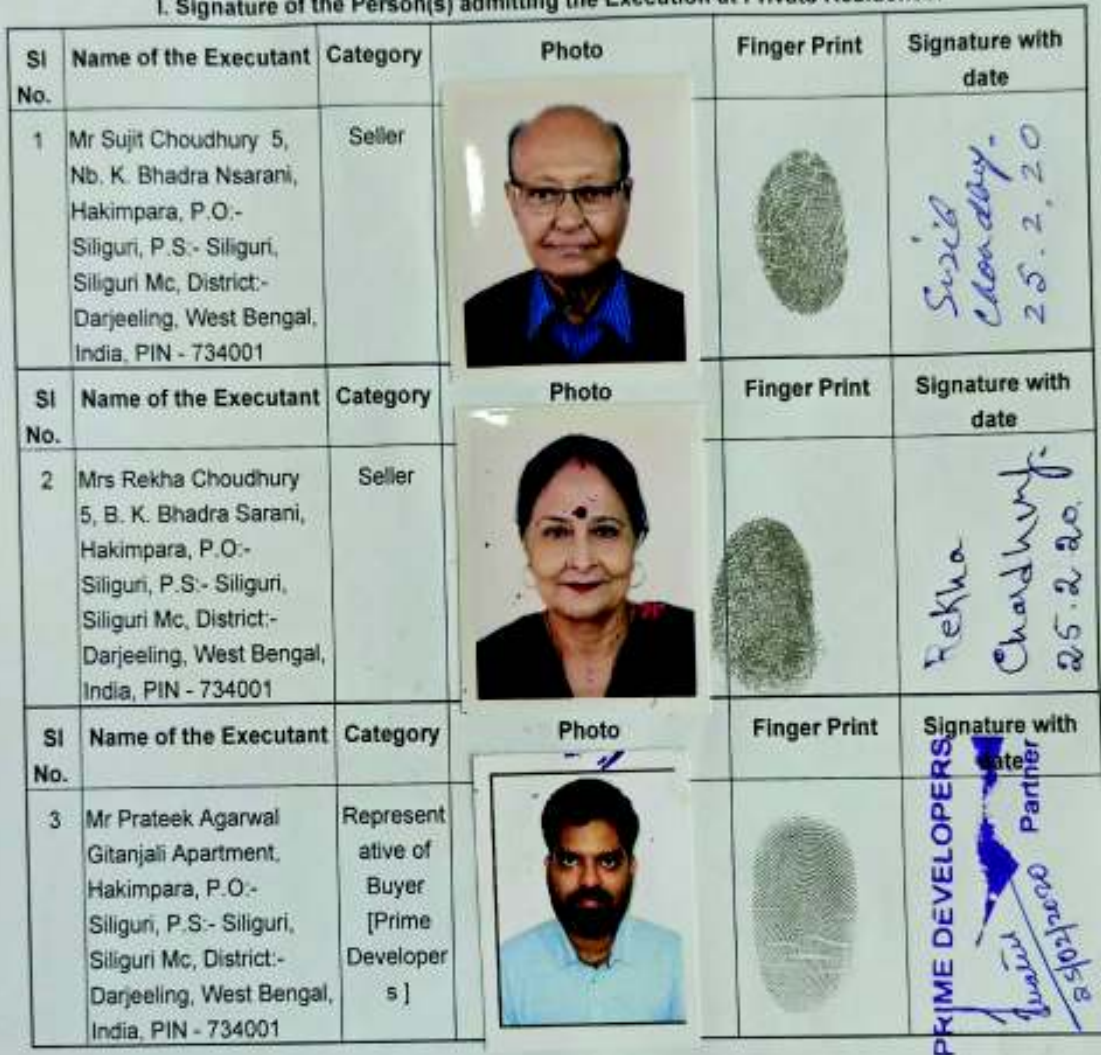 I. Signature of the Person(s) admitting the Execution at Private
Sl No. Name of the Executant Category Photo Finger Print Signature with date
1 Mr Sujit Choudhury 5, Seller
Nb. K. Bhadra Nsarani,
Hakimpara, P.O:-
Siliguri, P.S:- Siliguri,
Siliguri Mc, District:-
Darjeeling, West Bengal,
India, PIN - 734001
25.2.20
Sl No. Name of the Executant Category Photo Finger Print Signature with date
2 Mrs Rekha Choudhury Seller
5, B. K. Bhadra Sarani,
Hakimpara, P.O:-
Siliguri, P.S:- Siliguri,
Siliguri Mc, District:-
Darjeeling, West Bengal,
India, PIN - 734001
Rekha
25.2.20.
Sl No. Name of the Executant Category Photo Finger Print Signature with date
3 Mr Prateek Agarwal Represent
Gitanjali Apartment, ative of
Hakimpara, P.O:- Buyer
Siliguri, P.S:- Siliguri, [Prime
Siliguri Mc, District:- Developer
Darjeeling, West Bengal, s ]
India, PIN - 734001
PRIME DEVELOPERS
25/02/2020
Partner